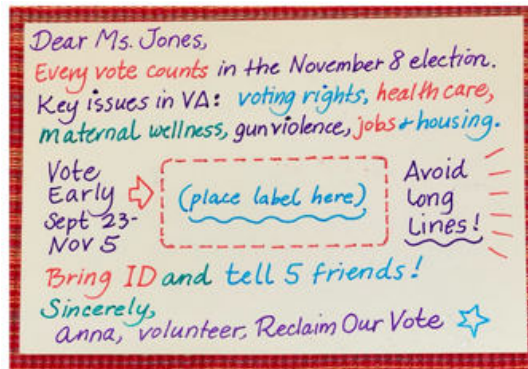 Dear Ms. Jones,
Every vote counts in the November 8 election.
Key issues in VA: voting rights, health care,
maternal wellness, gun violence, jobs + housing.
Vote
Early
Sept 23-
Nov 5
(place label here)
Avoid
Long
Lines!
Bring ID and tell 5 friends!
Sincerely,
anna, volunteer, Reclaim Our Vote